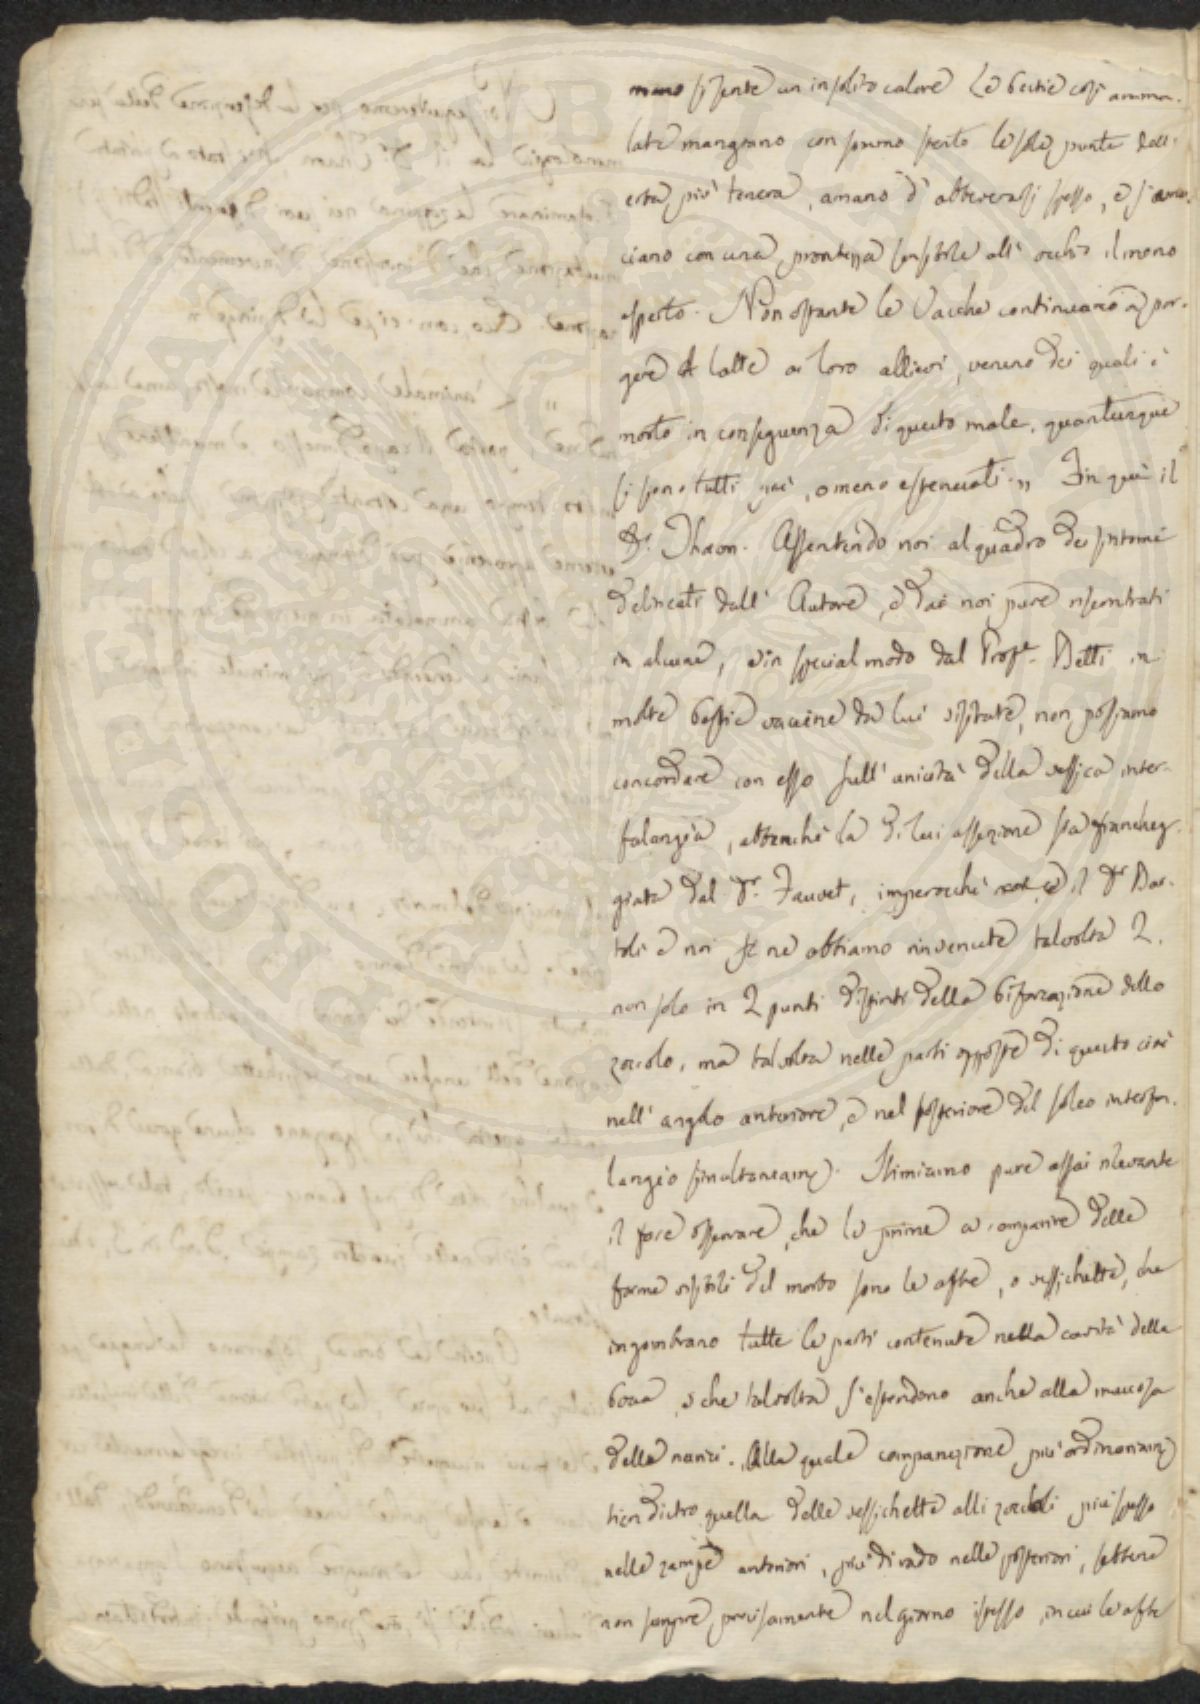 mano si sente un insolito calore Le bestie così amma-
late mangiano con sommo stento le sole punte dell'
erba più tenera, amano d'abbeverarsi spesso, e s'
ciano con una prontezza sensibile all'occhio il meno
esperto. Non ostante le Vacche continuano a por-
gere il latte ai loro allievi, veruno dei quali è
morto in conseguenza di questo male, quantunque
si sono tutti più, o meno estenuati „ Fin quì il
Dr. Thaon. Assentendo noi al quadro dei sintomi
delineati dall'Autore, e da noi pure riscontrati
in alcune, e in special modo dal Profe. Betti in
molte bestie vaccine da lui visitate, non possiamo
concordare con esso sull'unicità della vessica inter-
falangéa, abbenchè la di lui asserzione sia fiancheg-
giata dal Dr. Fauvet, imperocchè e il Dr Bar-
toli e noi ne abbiamo rinvenute talvolta 2.
non solo in 2 punti distinti della biforcazione dello
zoccolo, ma talvolta nelle parti opposte di questo cioè
nell'angolo anteriore, e nel posteriore del solco interfa-
langéo simultaneame). Stimiamo pure assai rilevante
il fare osservare, che le prime a comparire delle
forme visibili del morbo sono le afte, o vessichette, che
ingombrano tutte le parti contenute nella cavità della
bocca, e che talvolta s'estendono anche alla muccosa
delle narici. Alla quale comparizione più ordinariame)
tien dietro quella delle vessichette alli zoccoli più spesso
nelle zampe anteriori, più di rado nelle posteriori, sebbene
non sempre precisamente nel giorno istesso, in cui le afte